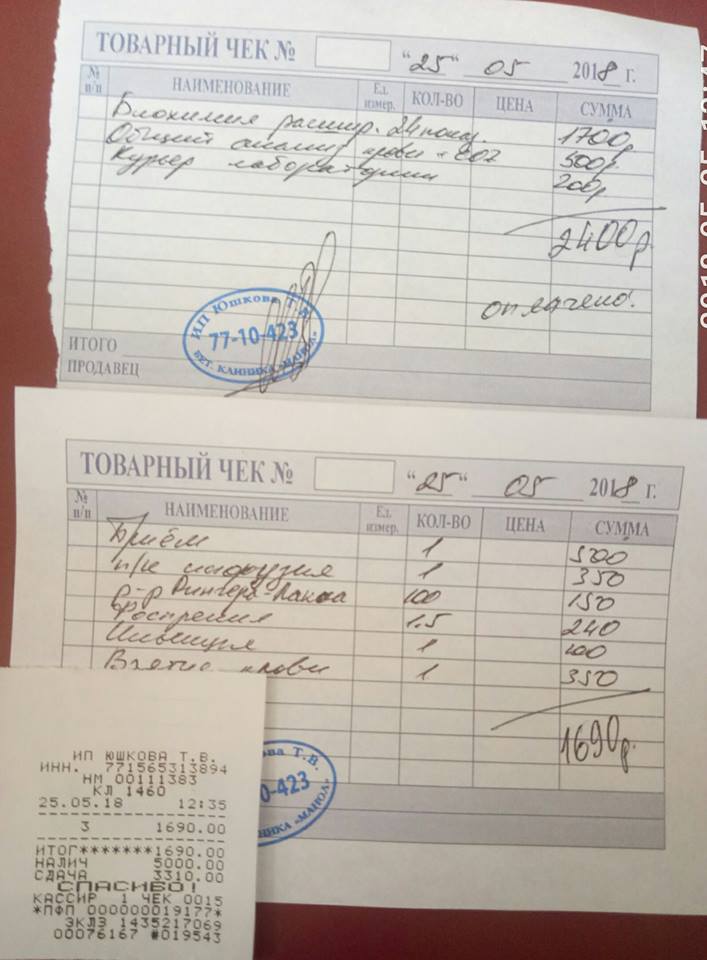 ТОВАРНЫЙ ЧЕК № "25" 05 2018 г.
№ п/п НАИМЕНОВАНИЕ Ед. измер. КОЛ-ВО ЦЕНА СУММА
Биохимия расшир. 24 показ. 1700р
Общий анализ крови + СОЭ 500р
Курьер лаборатории 200р
2400р
оплачено.
ИП Юшкова Т.В.
77-10-423
ВЕТ. КЛИНИКА «МАНОЛ»
ИТОГО
ПРОДАВЕЦ
ТОВАРНЫЙ ЧЕК № "25" 05 2018 г.
№ п/п НАИМЕНОВАНИЕ Ед. измер. КОЛ-ВО ЦЕНА СУММА
Приём 1 500
п/к инфузия 1 350
р-р Рингера-Лакта 100 150
1.5 240
Инъекция 1 100
Взятие крови 1 350
1690р.
ова Т.В.
0-423
ИНИКА «МАНОЛ»
ИП ЮШКОВА Т.В.
ИНН. 771565313894
НМ 00111383
КЛ 1460
25.05.18 12:35
3 1690.00
ИТОГ*******1690.00
НАЛИЧ 5000.00
СДАЧА 3310.00
СПАСИБО!
КАССИР 1 ЧЕК 0015
*ПФП 000000019177*
ЭКЛЗ 1435217069
00076167 #019543